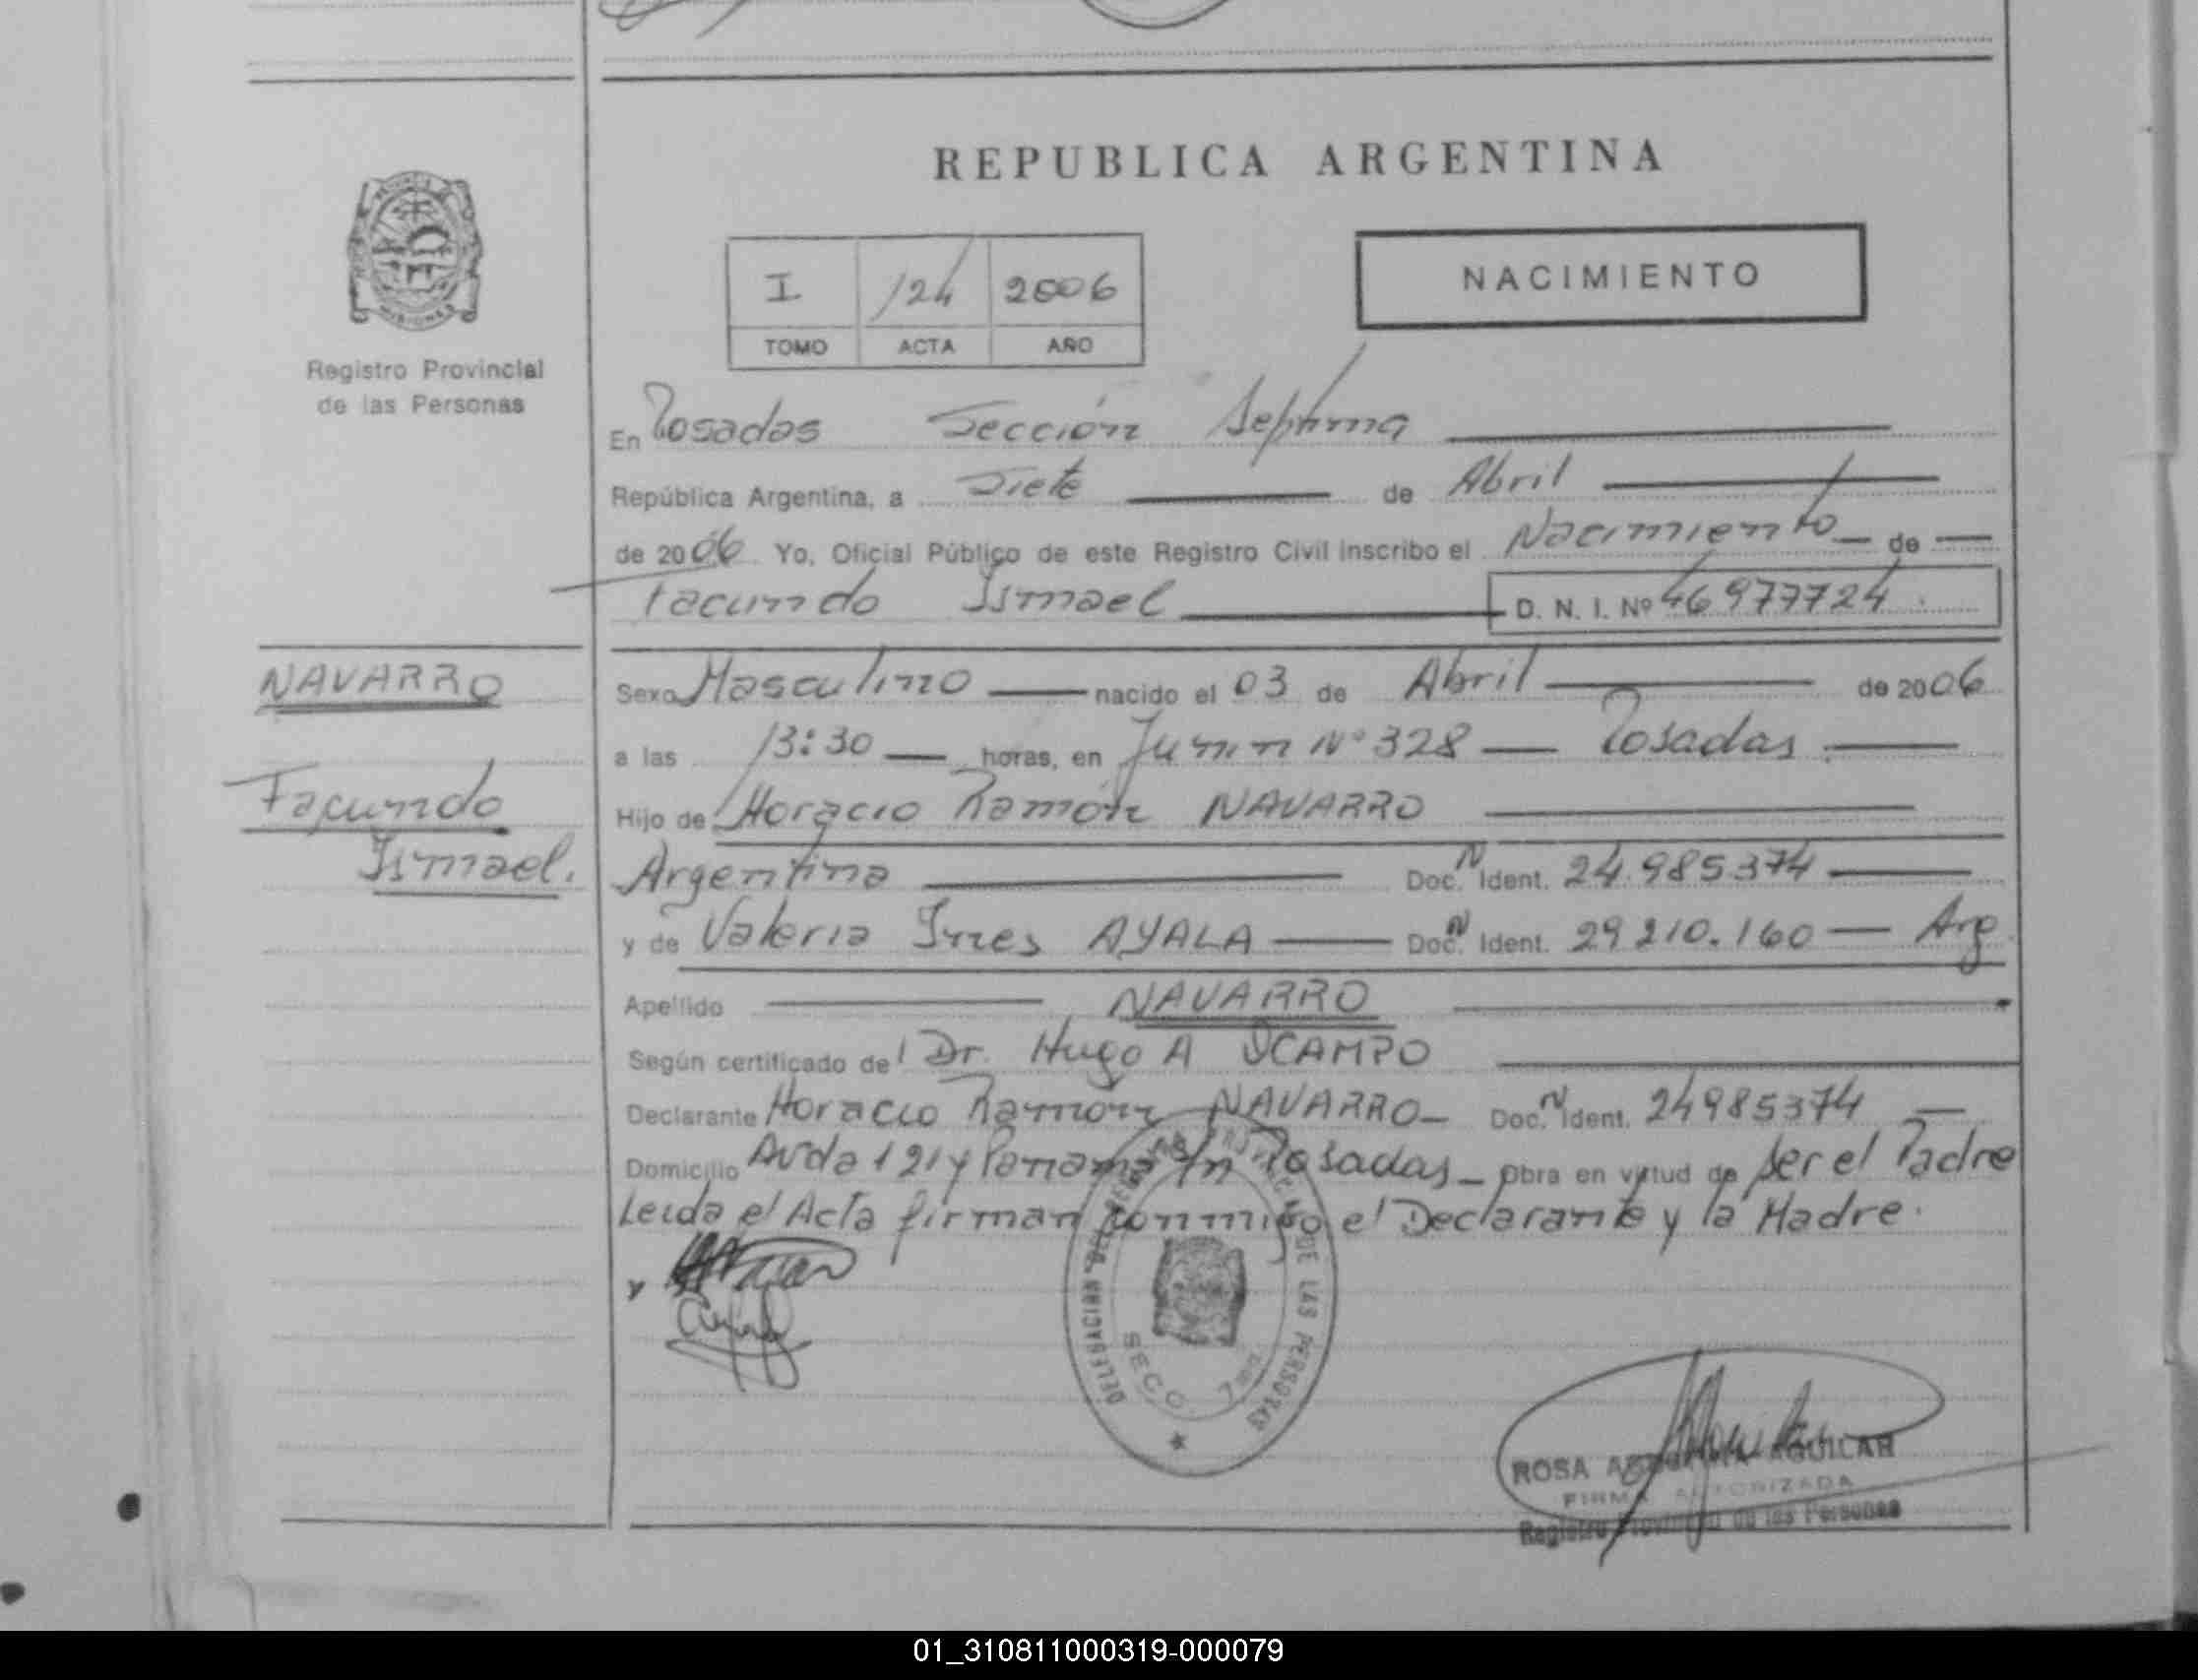 REPUBLICA ARGENTINA
I 124 2006
TOMO ACTA AÑO
NACIMIENTO
Registro Provincial
de las Personas
En Posadas Sección Septima
República Argentina, a Siete de Abril
de 2006 Yo, Oficial Público de este Registro Civil inscribo el Nacimiento de
Facundo Ismael D. N. I. Nº 46977724
NAVARRO
Facundo
Ismael.
Sexo Masculino nacido el 03 de Abril de 2006
a las 13:30 horas, en Junin Nº 328 Posadas
Hijo de Horacio Ramón NAVARRO
Argentina Doc. N Ident. 24.985374
y de Valeria Ines AYALA Doc. N Ident. 29210.160 Arg
Apellido NAVARRO
Según certificado del Dr. Hugo A OCAMPO
Declarante Horacio Ramón NAVARRO Doc. N Ident. 24985374
Domicilio Avda 121 y Panama S/n Posadas Obra en virtud de ser el Padre
Leida el Acta firman conmigo el Declarante y la Madre.
DELEGACION DE LAS PERSONAS
SECC. 7ma.
ROSA AGUILAR
FIRMA AUTORIZADA
Registro Provincial de las Personas
01_310811000319-000079